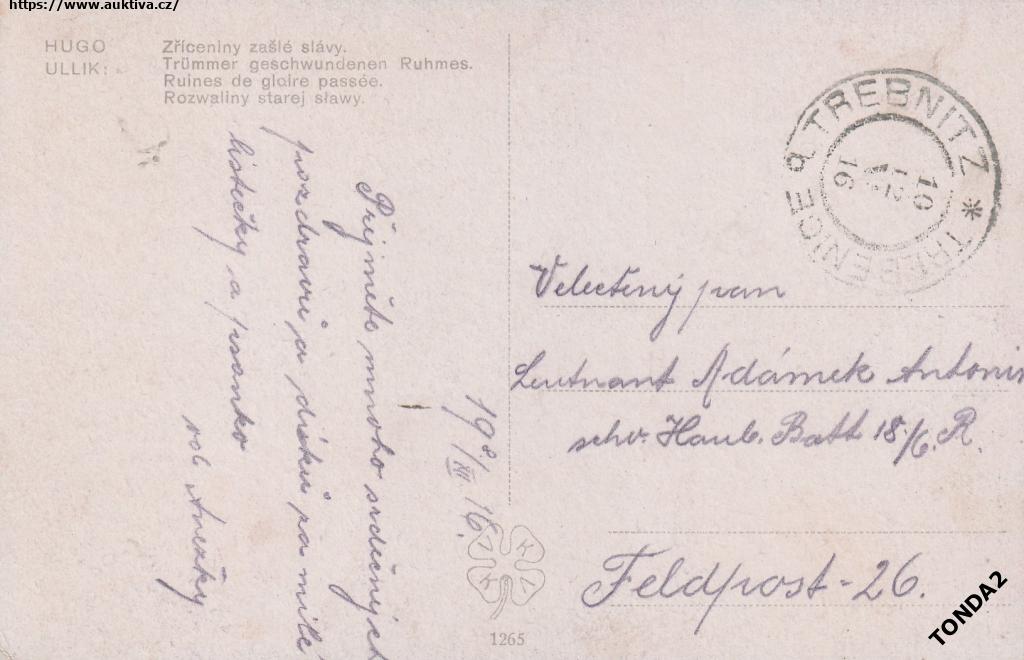 https://www.auktiva.cz/
HUGO
ULLIK:
Zříceniny zašlé slávy.
Trümmer geschwundenen Ruhmes.
Ruines de gloire passée.
Rozwaliny starej sławy.
19 8/XII 16.
Přijměte mnoho srdečných
pozdravů a díků za milé
lístečky a psaníčko
od Anežky
TŘEBENICE * TREBNITZ
10
12
16
Velectěný pan
Leutnant Adámek Antonin
schv. Haub. Batt 18./6. R.
Feldpost - 26.
K
Z
K
Z
1265
TONDA2